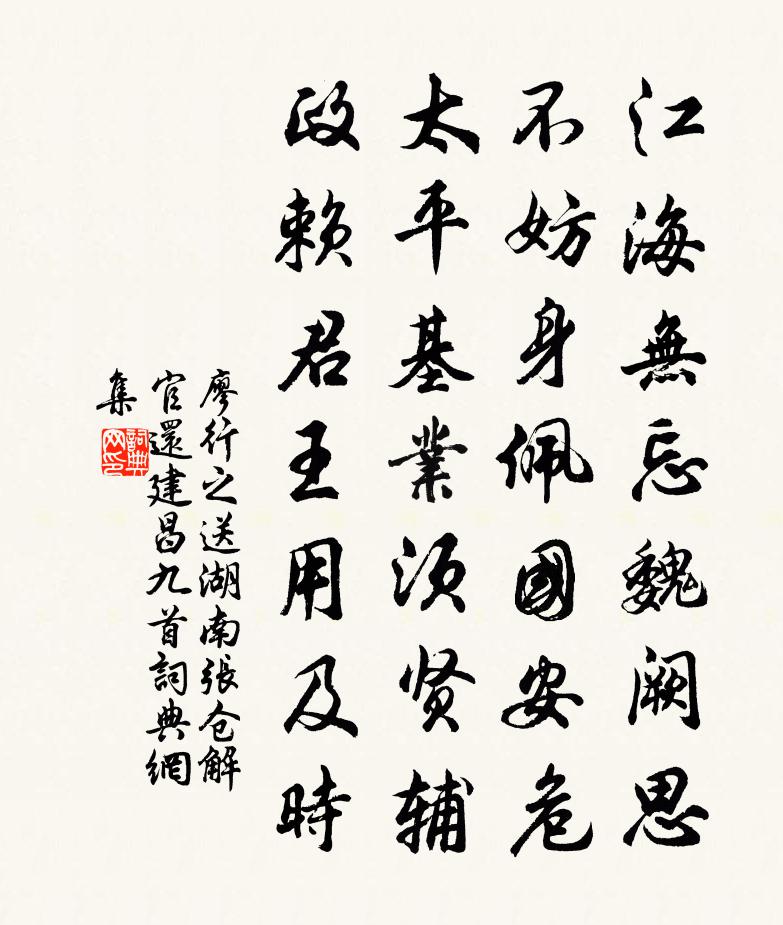 江海無忘魏阙思
不妨身佩國安危
太平基業须贤辅
政赖君王用及時
廖行之送湖南張仓解
官還建昌九首詞典網
集
詞典
网印